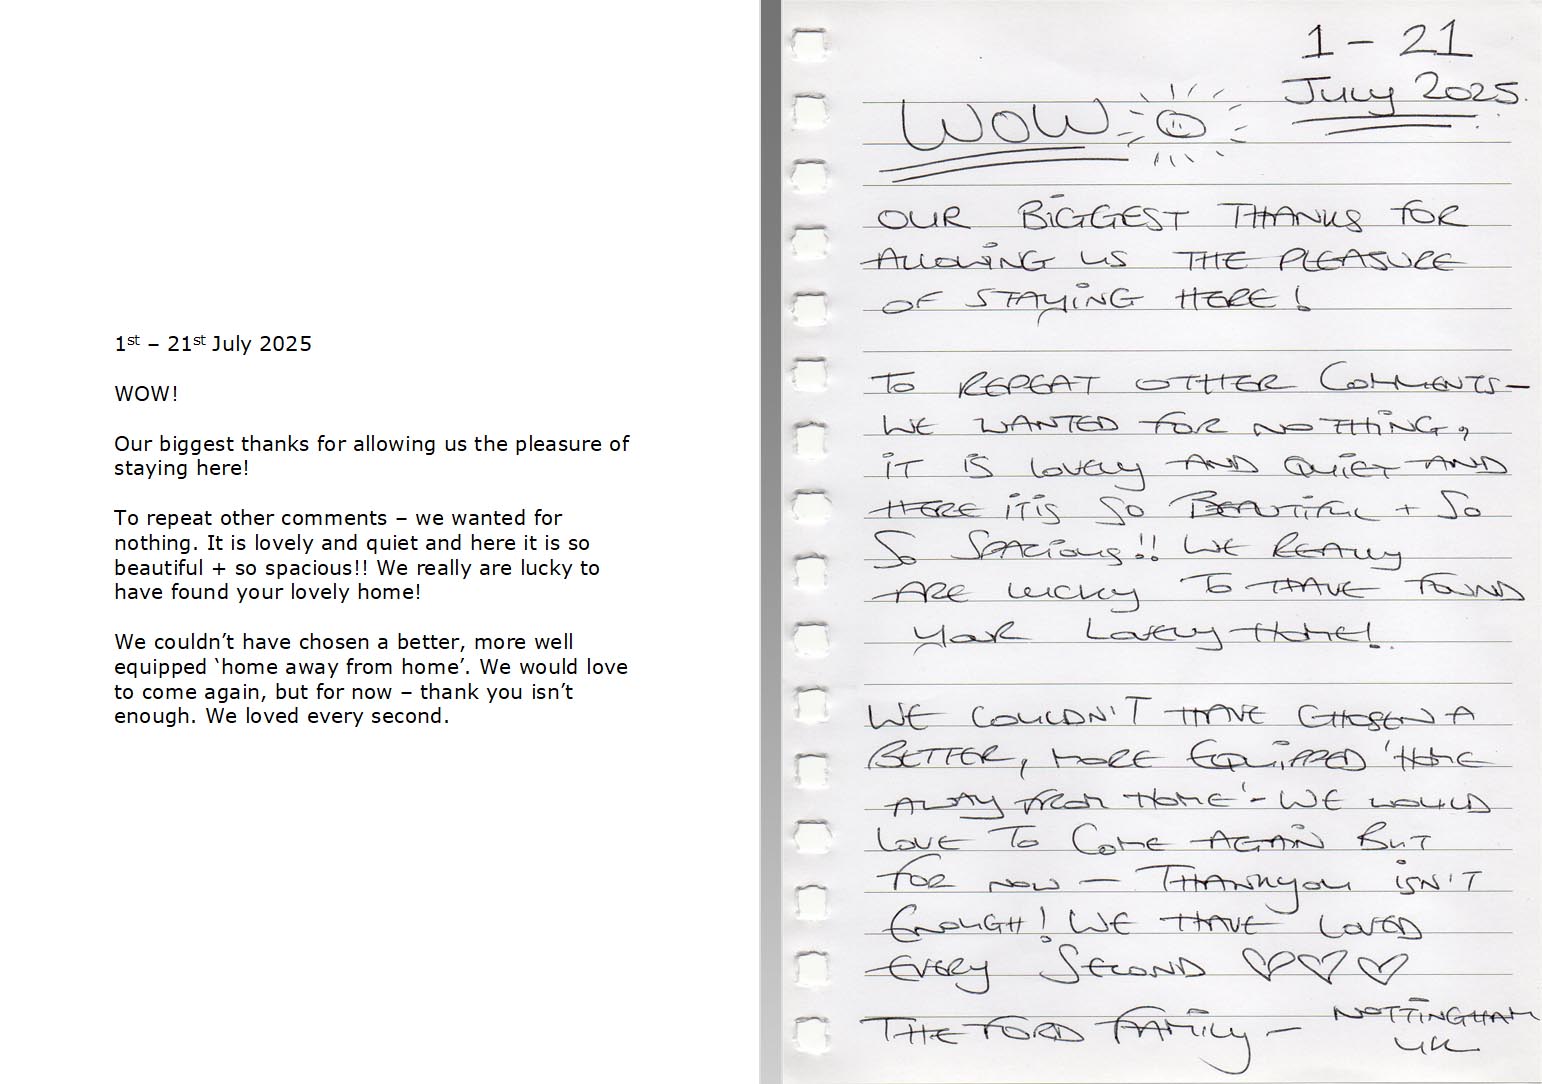 1st – 21st July 2025
WOW!
Our biggest thanks for allowing us the pleasure of
staying here!
To repeat other comments – we wanted for
nothing. It is lovely and quiet and here it is so
beautiful + so spacious!! We really are lucky to
have found your lovely home!
We couldn’t have chosen a better, more well
equipped ‘home away from home’. We would love
to come again, but for now – thank you isn’t
enough. We loved every second.
1 – 21
July 2025.
WOW
OUR BIGGEST THANKS FOR
ALLOWING US THE PLEASURE
OF STAYING HERE!
TO REPEAT OTHER COMMENTS –
WE WANTED FOR NOTHING,
IT IS LOVELY AND QUIET AND
HERE IT IS SO BEAUTIFUL + SO
SO SPACIOUS!! WE REALLY
ARE LUCKY TO HAVE FOUND
YOUR LOVELY HOME!
WE COULDN'T HAVE CHOSEN A
BETTER, MORE EQUIPPED 'HOME
AWAY FROM HOME' – WE WOULD
LOVE TO COME AGAIN BUT
FOR NOW – THANKYOU ISN'T
ENOUGH! WE HAVE LOVED
EVERY SECOND ♡♡♡
THE FORD FAMILY – NOTTINGHAM
UK